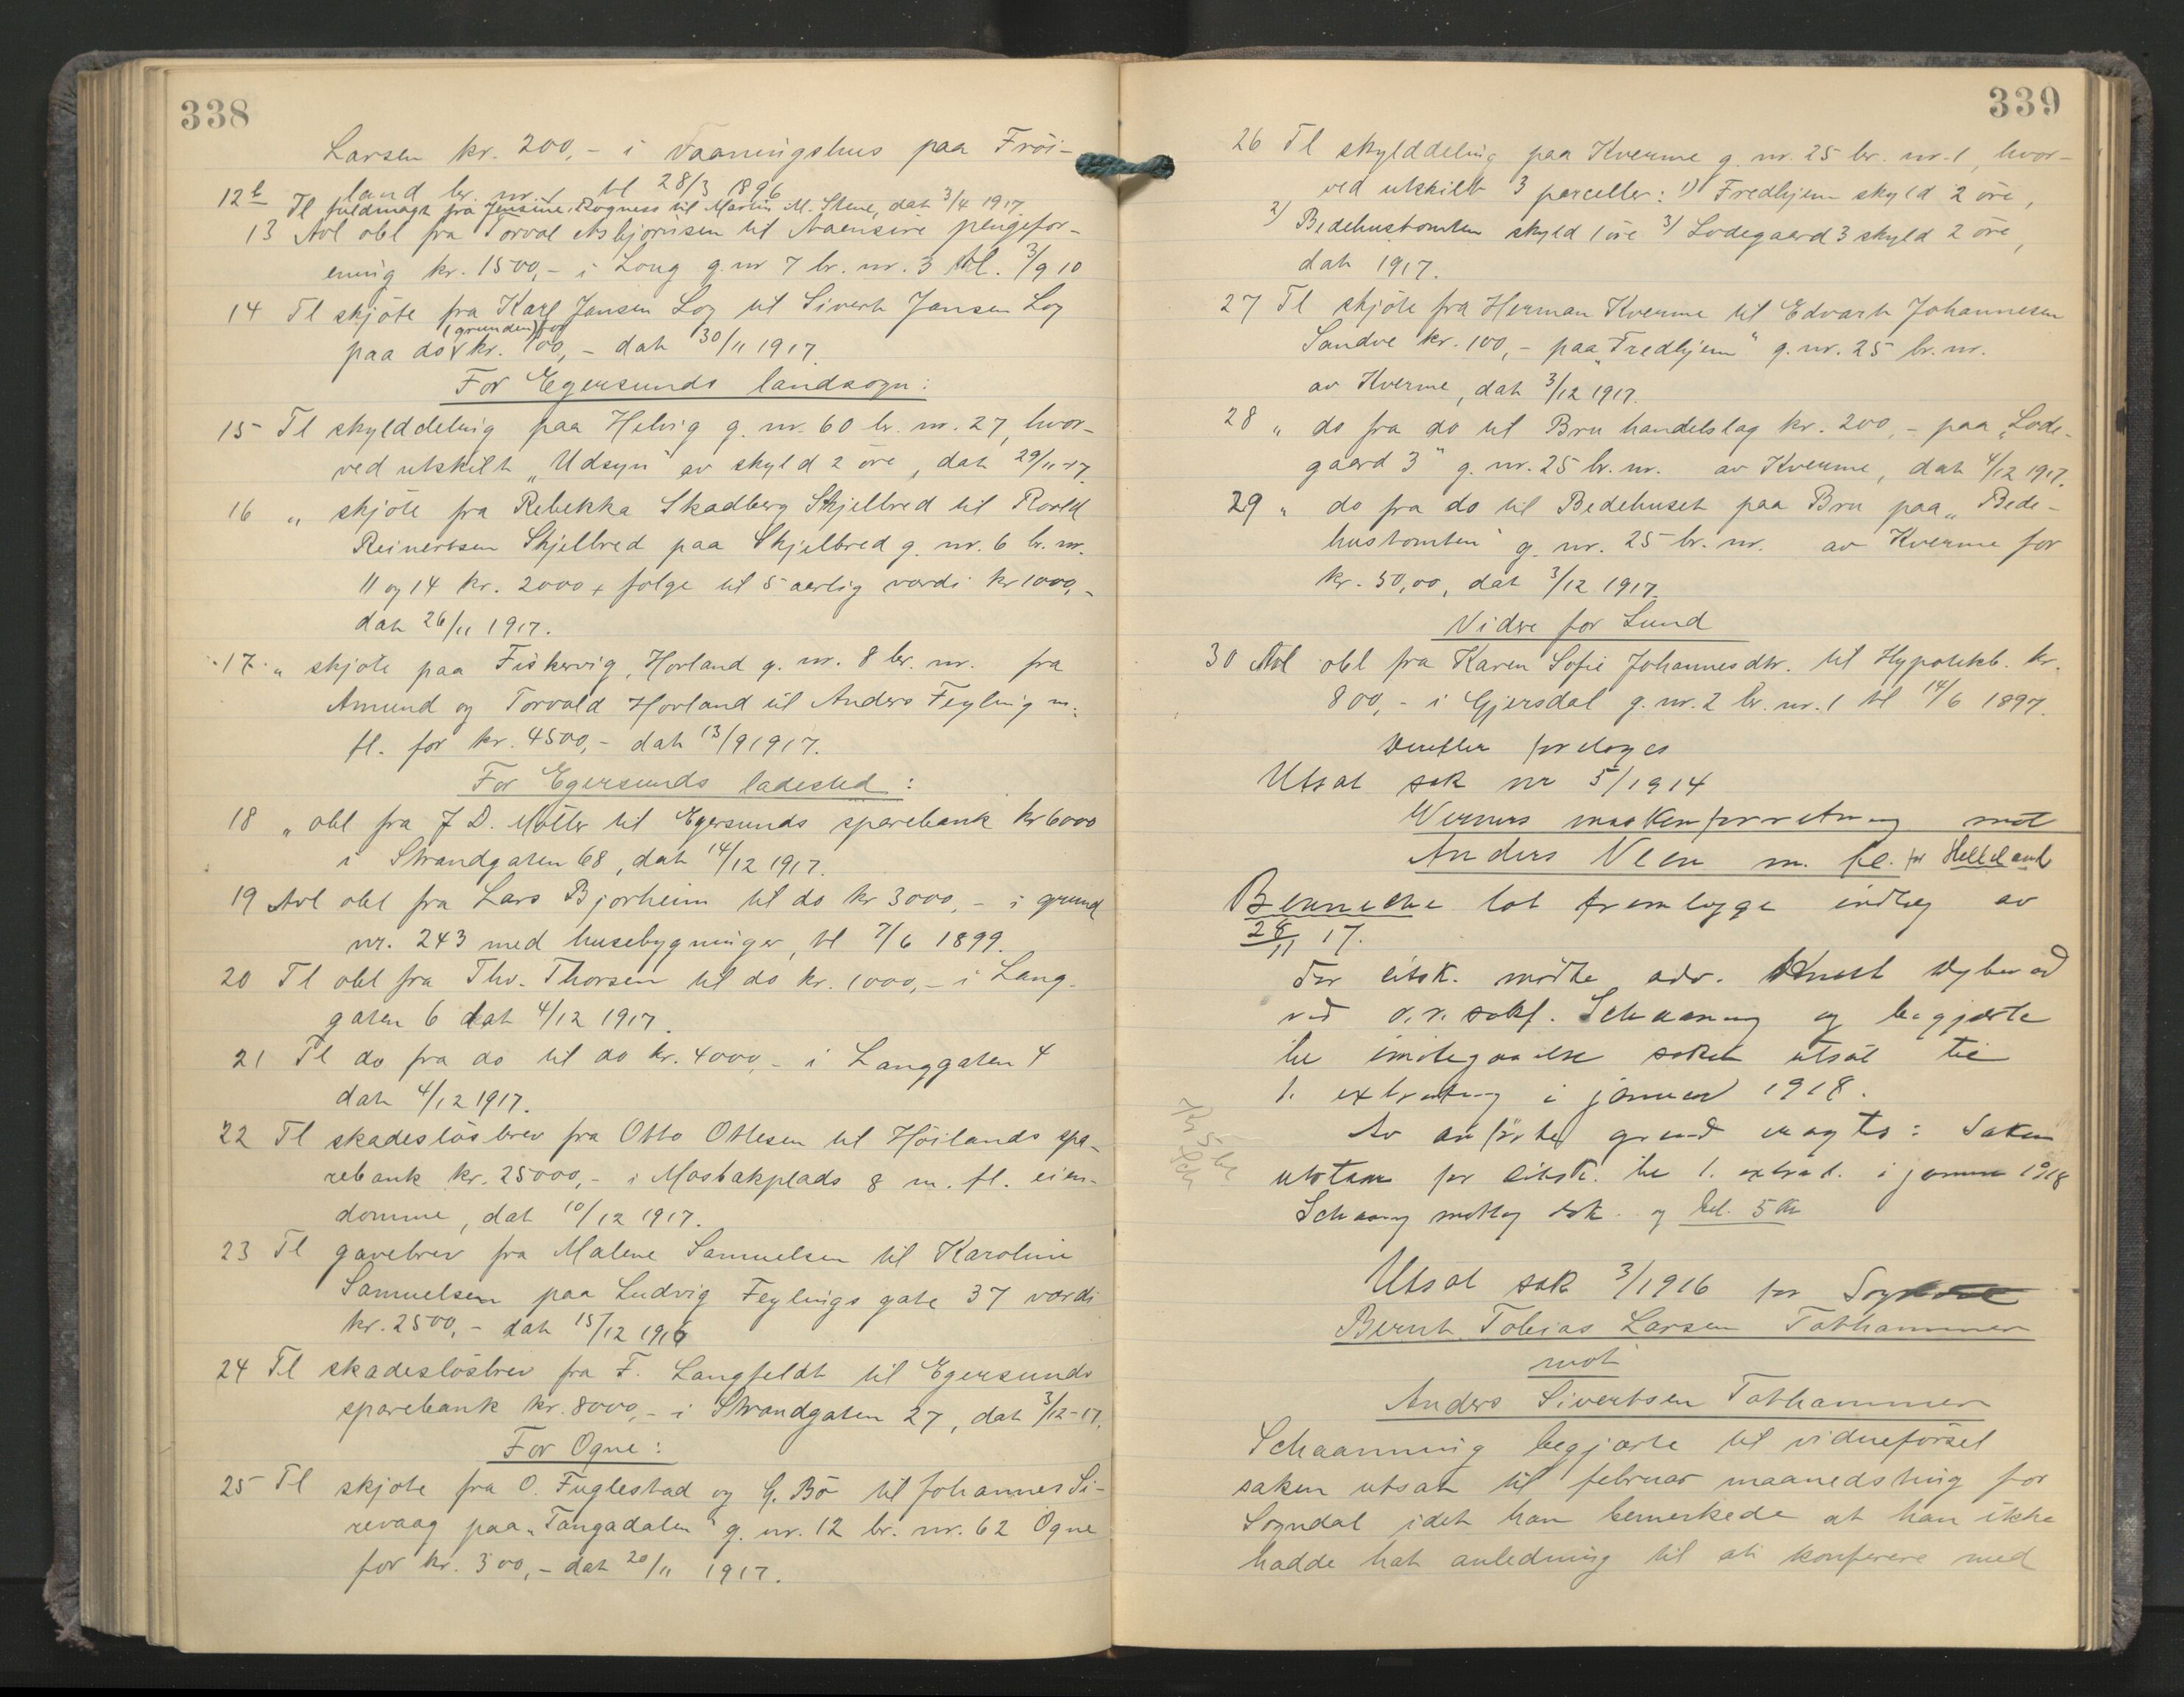 338
Larsen kr. 200,- i Vaaningshus paa Fröi-
land br. nr. 1 tl 28/3 1896
12b Tl fuldmagt fra Jensine Rogness til Martin M. Stene, dat 3/4 1917
13 Avl obl fra Torval Asbjörnsen til Naensire pengefor-
ening kr. 1500,- i Long g. nr 7 br. nr. 3 tl. 3/9 10
14 Tl skjöte fra Karl Jansen Log til Sivert Jansen Log
(grunden) for
paa do kr. 100,- dat 30/11 1917.
For Egersunds landsogn:
15 Tl skylddeling paa Helvig g. nr. 60 br. nr. 27, hvor-
ved utskilt "Udsyn" av skyld 2 öre, dat 29/11-17.
16 " skjöte fra Rebekka Skadberg Skjelbred til Roald
Reinertsen Skjelbred paa Skjelbred g. nr. 6 br. nr.
11 og 14 kr. 2000 + folge til 5 aarlig værdi kr 1000,-
dat 26/11 1917.
17 " skjöte paa Fiskervig, Hovland g. nr. 8 br. nr. fra
Amund og Torvald Hovland til Anders Feyling m.
fl. for kr. 4500,- dat 13/9 1917.
For Egersunds ladested:
18 " obl fra J. D. Möller til Egersunds sparebank kr 6000
i Strandgaten 68, dat 14/12 1917.
19 Avl obl fra Lars Bjorheim til do kr 3000,- i grund
nr. 243 med husebygninger, tl 7/6 1899.
20 Tl obl fra Thv. Thorsen til do kr. 1000,- i Lang-
gaten 6 dat 4/12 1917.
21 Tl do fra do til do kr. 4000,- i Langgaten 4
dat 4/12 1917.
22 Tl skadeslösbrev fra Otto Ottesen til Höilands spa-
rebank kr. 25000,- i Mosbakplads 8 m. fl. eien-
domme, dat 10/12 1917.
23 Tl gavebrev fra Malene Samuelsen til Karoline
Samuelsen paa Ludvig Feylings gate 37 værdi
kr. 2500,- dat 15/12 1916
24 Tl skadeslösbrev fra F. Langfeldt til Egersunds
sparebank kr. 8000,- i Strandgaten 27, dat 3/12-17.
For Ogne:
25 Tl skjöte fra O. Fuglestad og G. Bö til Johannes Si-
revaag paa "Tangadalen" g. nr. 12 br. nr. 62 Ogne
for kr. 300,- dat 20/11 1917.
339
26 Tl skylddeling paa Kverme g. nr. 25 br. nr. 1, hvor-
ved utskilt 3 parceller: 1) Fredhjem skyld 2 öre,
2) Bedehustomten skyld 1 öre 3) Lodegaard 3 skyld 2 öre,
dat 1917.
27 Tl skjöte fra Herman Kverme til Edvart Johannesen
Sandve kr. 100,- paa "Fredhjem" g. nr. 25 br. nr.
av Kverme, dat 3/12 1917.
28 " do fra do til Bru handelslag kr. 200,- paa "Lode-
gaard 3" g. nr. 25 br. nr. av Kverme, dat 4/12 1917.
29 " do fra do til Bedehuset paa Bru paa "Bede-
hustomten" g. nr. 25 br. nr. av Kverme for
kr. 50,00, dat 3/12 1917.
Vidre for Lund
30 Avl obl fra Karen Sofie Johannesdtr. til Hypotekb. kr.
800,- i Gjersdal g. nr. 2 br. nr. 1 tl 14/6 1897.
Derefter foretoges
Utsat sak nr 5/1914
Werners maskinforretning mot
Anders Veen m. fl. for Helleland
Bennecke lot fremlegge indlæg av
28/11 17.
For citsk. mödte adv. Knut
ved o.r.sakf. Schaanning og begjærte
til imötegaaelse saken utsat til
1. extrating i januar 1918.
Av anförte grund eragtes: Saken
utstaar for citsk. til 1. extrat. i januar 1918
Schaanning mottog dok. og bet. 5 kr
Kr 5 bet
Sch
Utsat sak 3/1916 for
Bernt Tobias Larsen Tothammer
mot
Anders Sivertsen Tothammer
Schaanning begjærte til vidneförsel
saken utsat til februar maanedsting for
Sogndal idet han bemerkede at han ikke
hadde hat anledning til at konferere med